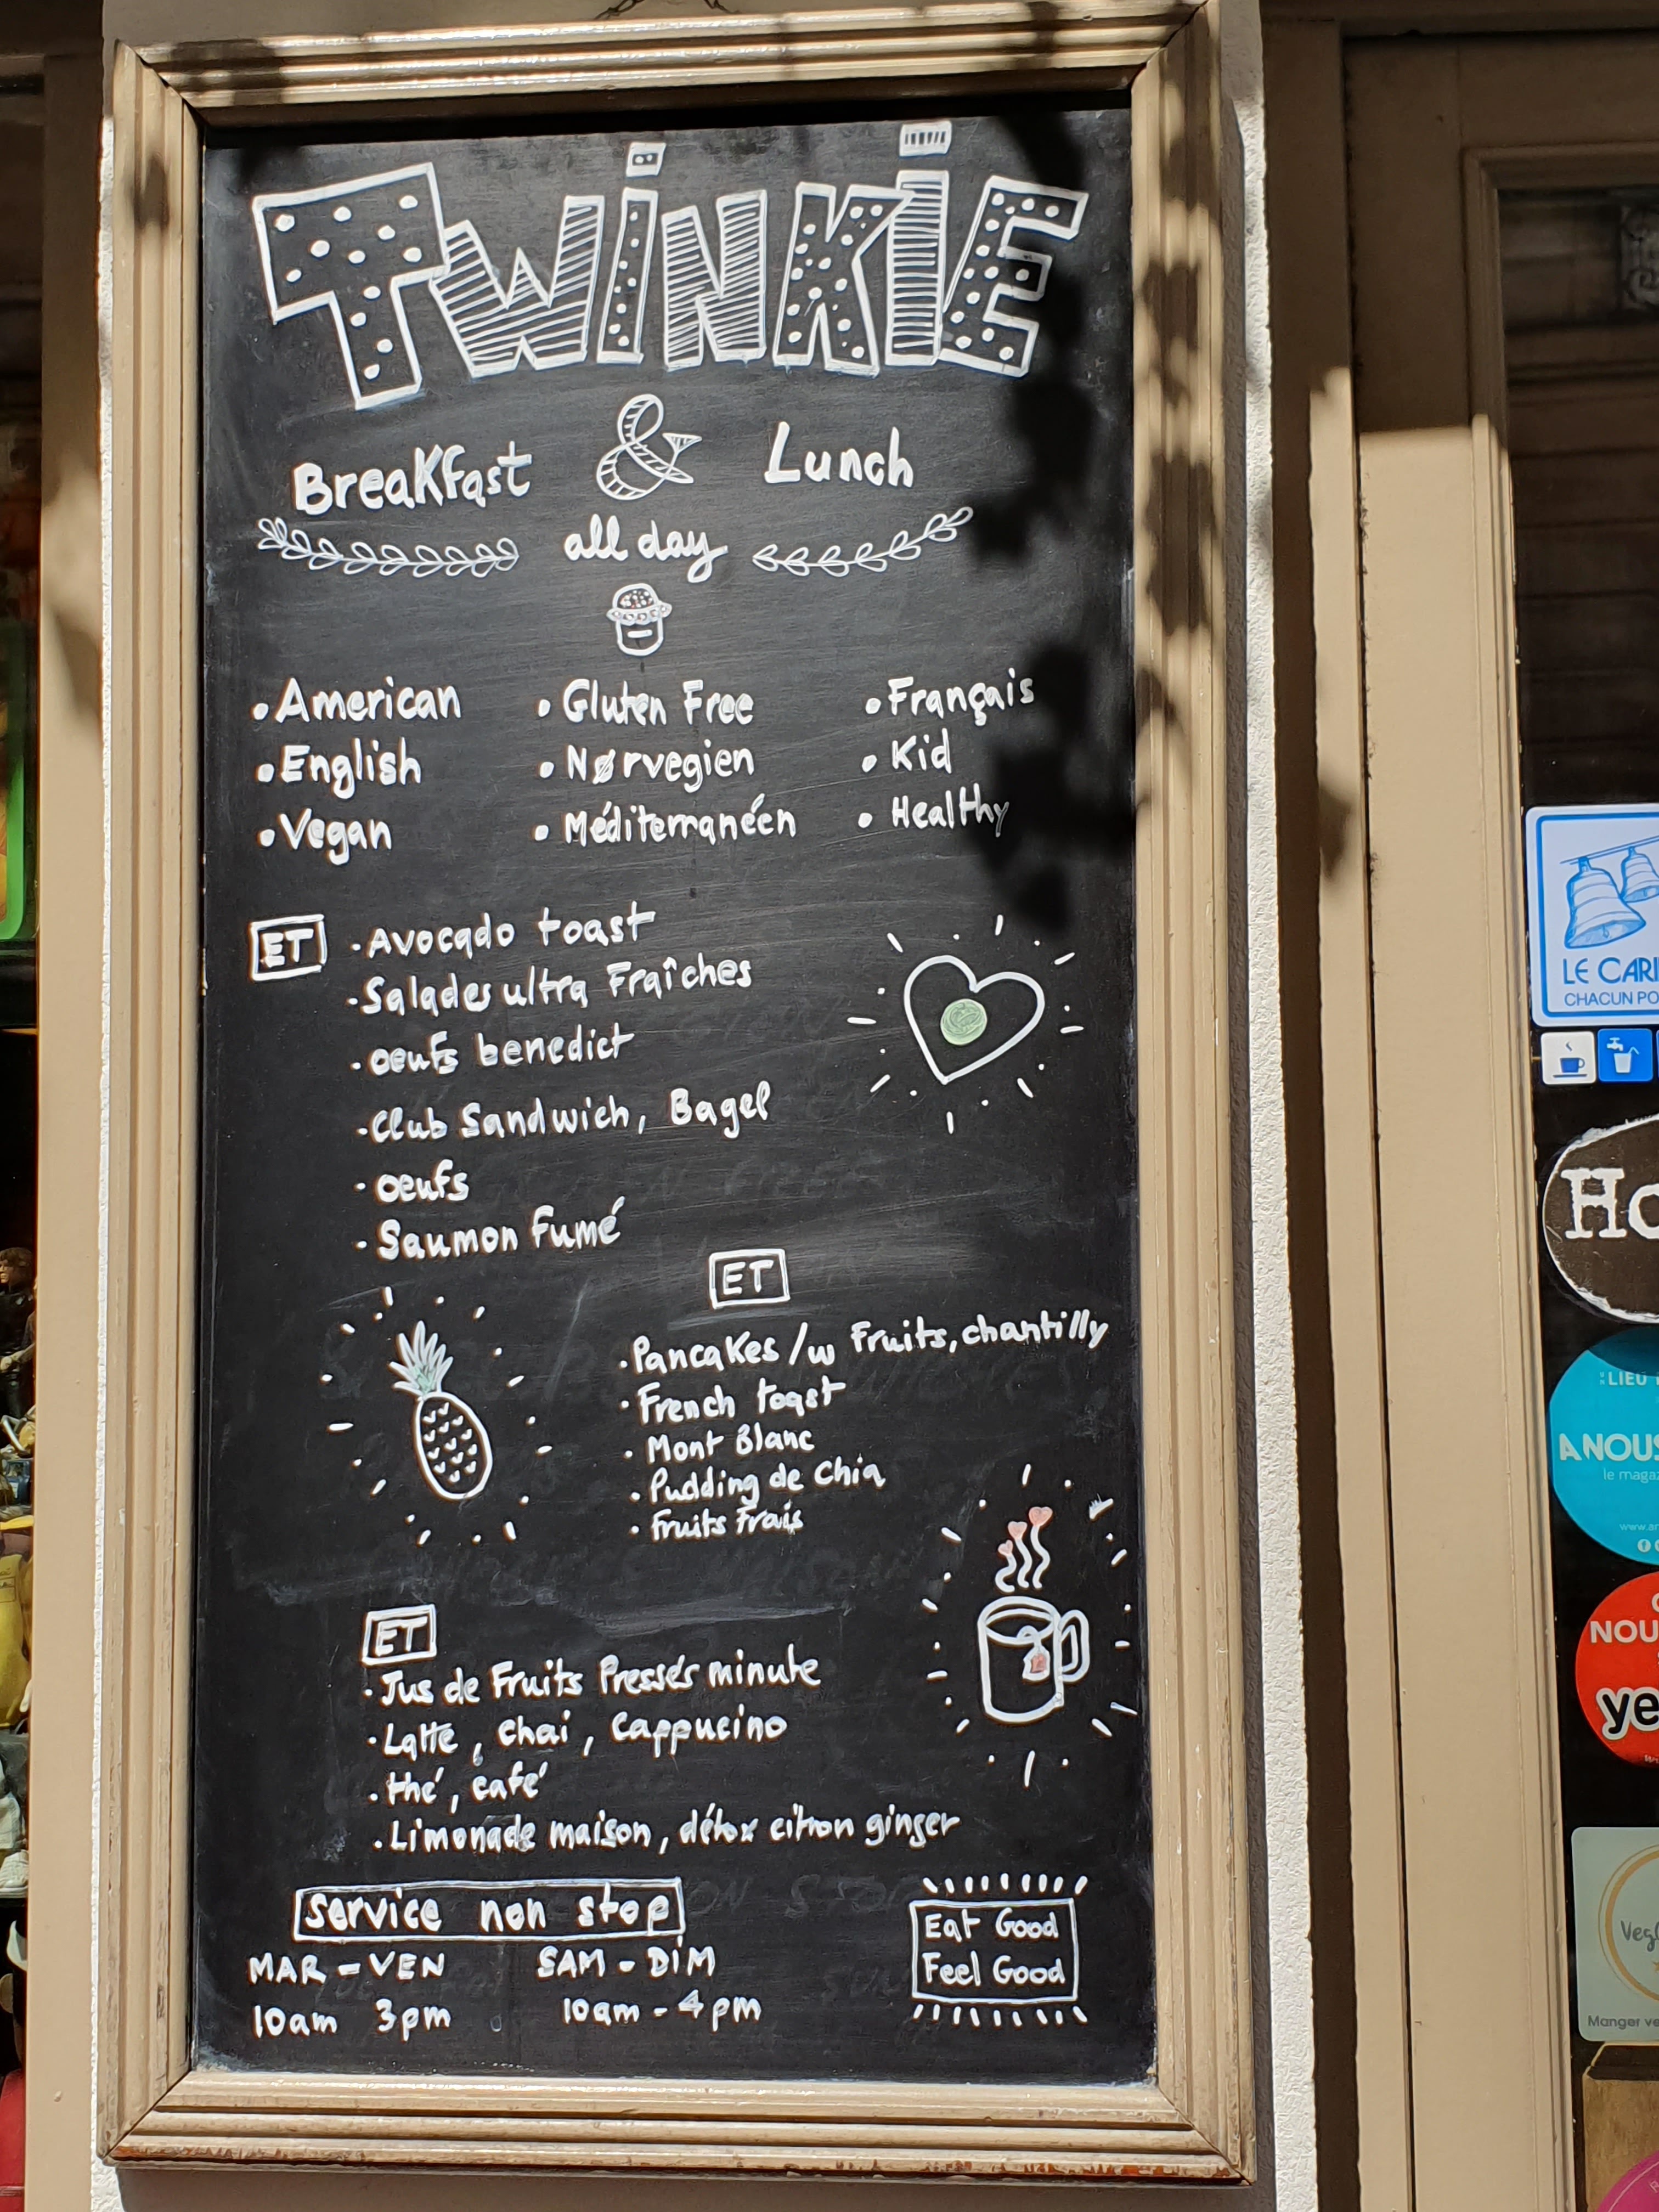 TWINKIE
Breakfast & Lunch
all day
• American • Gluten Free • Français
• English • Nørvegien • Kid
• Vegan • Méditerranéen • Healthy
ET • Avocado toast
- Salades ultra Fraîches
• oeufs benedict
• Club Sandwich, Bagel
• oeufs
• Saumon Fumé
ET
• Pancakes /w Fruits, chantilly
• French toast
• Mont Blanc
• Pudding de Chia
• Fruits Frais
ET
• Jus de Fruits Pressés minute
• Latte, chai, Cappucino
• thé, café
• Limonade maison, détox citron ginger
service non stop
MAR - VEN SAM - DIM
10am 3pm 10am - 4pm
Eat Good
Feel Good
LE CARI
CHACUN PO
Ho
LIEU
ANOUS
le magaz
NOU
ye
Veg
Manger ve